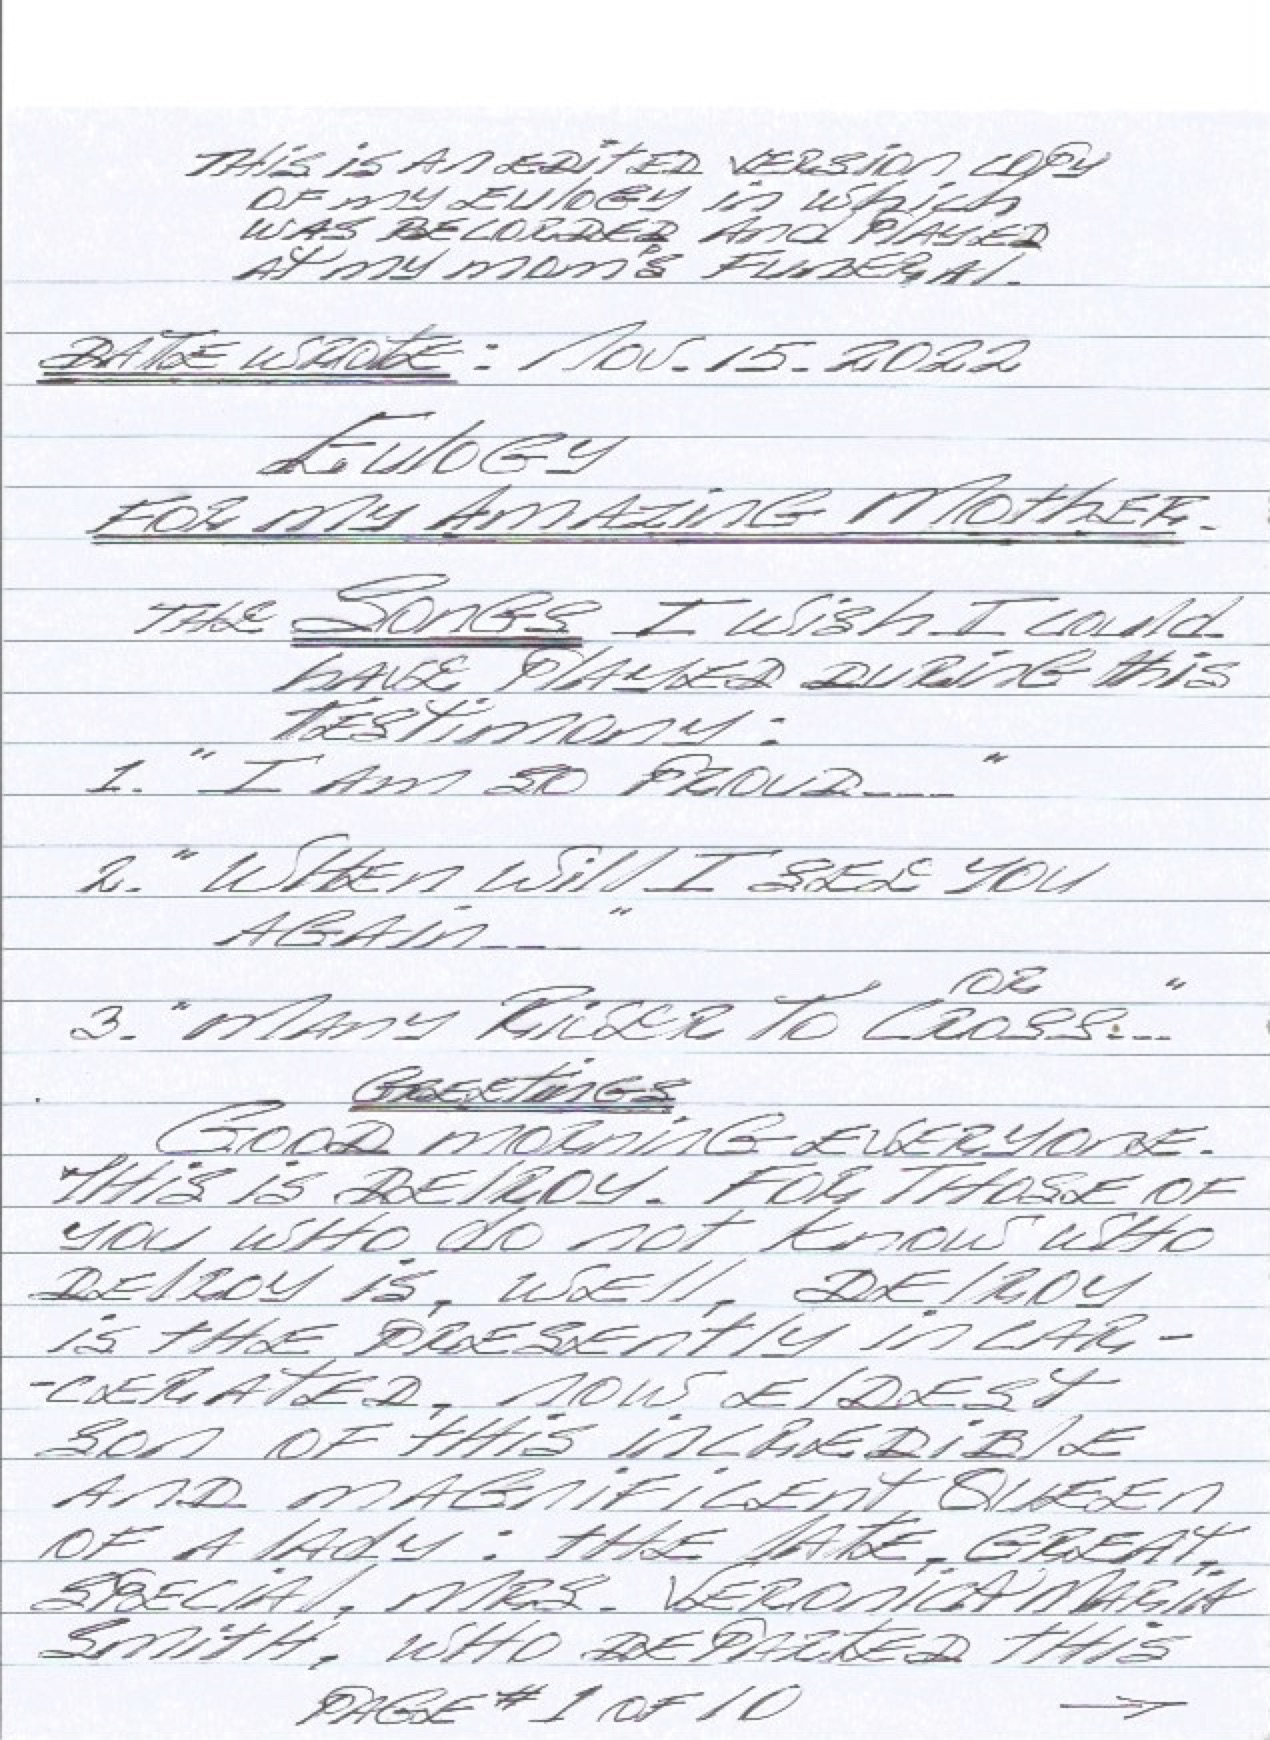 THIS IS AN EDITED VERSION COPY
OF MY EULOGY IN WHICH
WAS RECORDED AND PLAYED
AT MY MOM'S FUNERAL.
DATE WROTE: NOV. 15. 2022
EULOGY
FOR MY AMAZING MOTHER.
THE SONGS I WISH I COULD
HAVE PLAYED DURING THIS
TESTIMONY:
1. "I AM SO PROUD...."
2. "WHEN WILL I SEE YOU
AGAIN...."
OR
3. "MANY RIVER TO CROSS...."
GREETINGS
GOOD MORNING EVERYONE.
THIS IS DELROY. FOR THOSE OF
YOU WHO DO NOT KNOW WHO
DELROY IS, WELL, DELROY
IS THE PRESENTLY INCAR-
-CERATED, NOW ELDEST
SON OF THIS INCREDIBLE
AND MAGNIFICENT QUEEN
OF A LADY: THE LATE, GREAT,
SPECIAL, MRS. VERONICA MARIA
SMITH, WHO DEPARTED THIS
PAGE # 1 OF 10 →